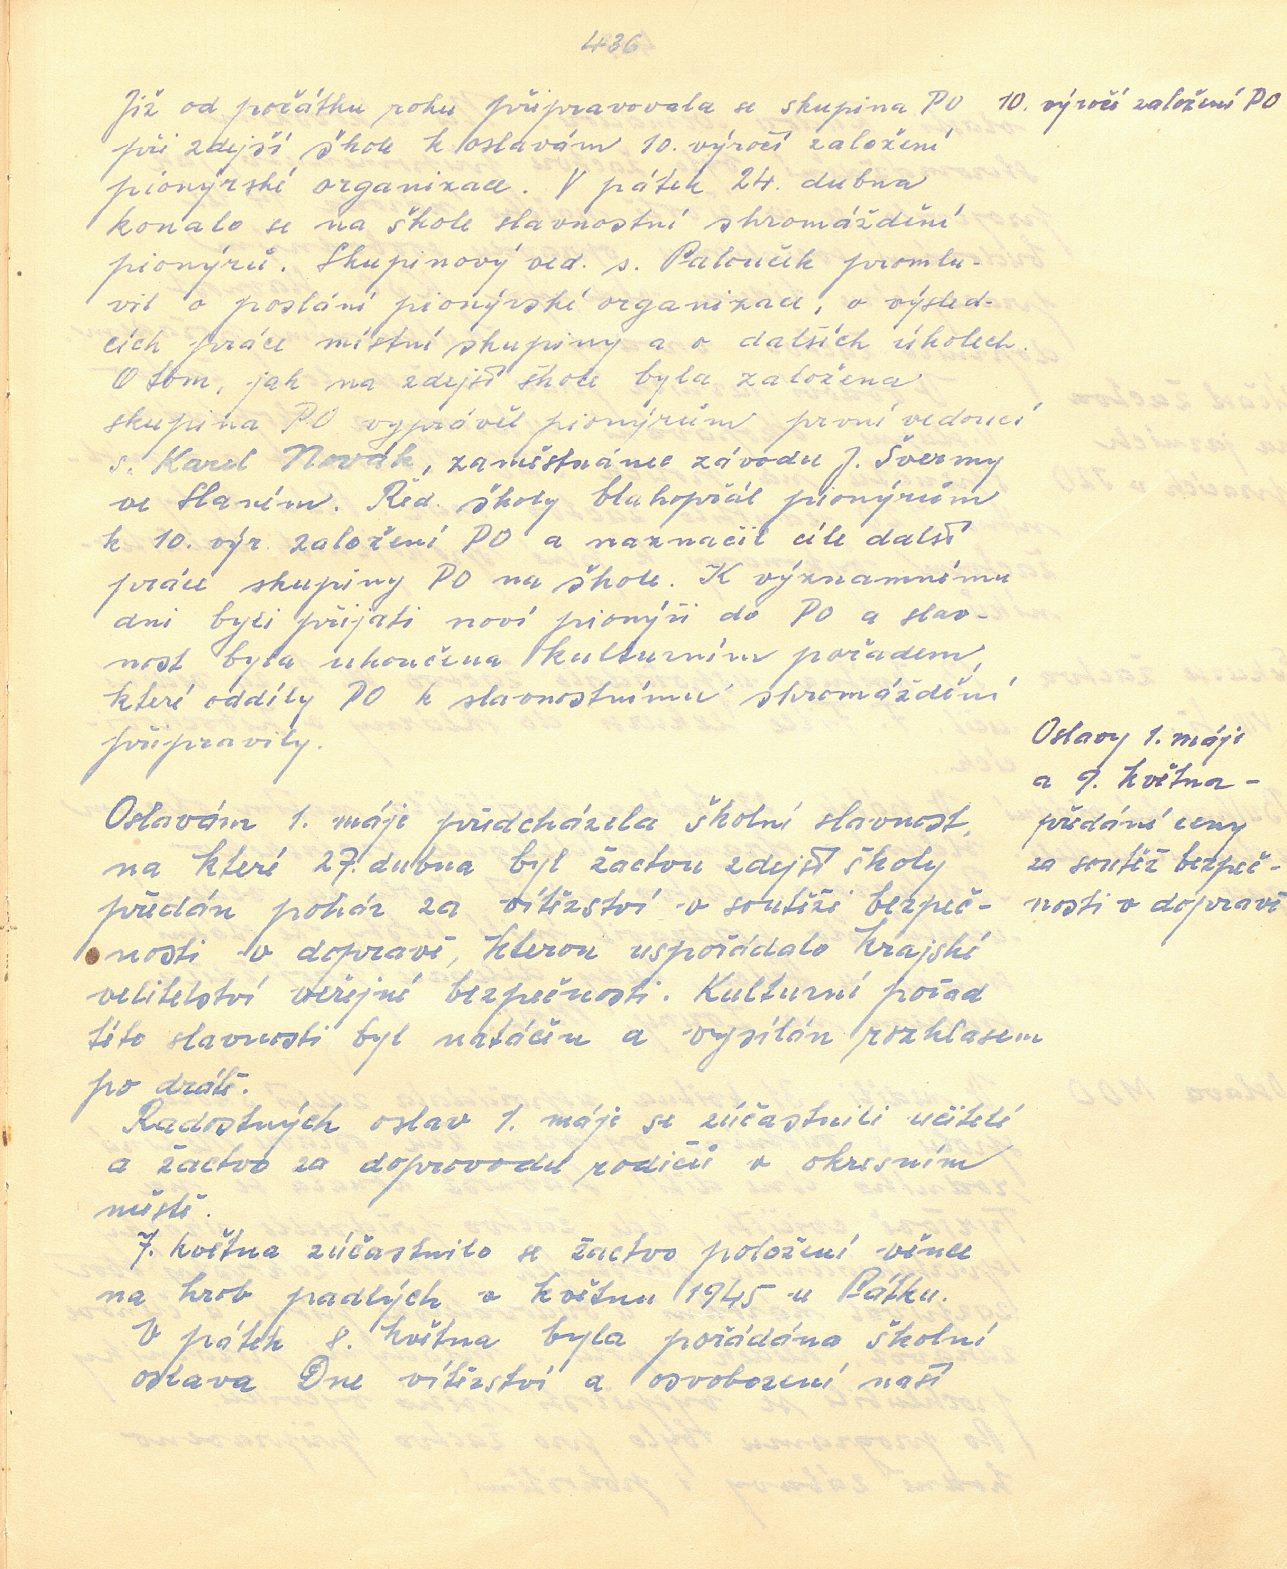 436
Již od počátku roku připravovala se skupina PO
při zdejší škole k oslavám 10. výročí založení
pionýrské organizace. V pátek 24. dubna
konalo se na škole slavnostní shromáždění
pionýrů. Skupinový ved. s. Palouček promlu-
vil o poslání pionýrské organizace, o výsled-
cích práce místní skupiny a o dalších úkolech.
O tom, jak na zdejší škole byla založena
skupina PO vyprávěl pionýrům první vedoucí
s. Karel Novák, zaměstnanec závodu J. Švermy
ve Slaném. Řed. školy blahopřál pionýrům
k 10. výr. založení PO a naznačil cíle další
práce skupiny PO na škole. K významnému
dni byli přijati noví pionýři do PO a slav-
nost byla ukončena kulturním pořadem,
které oddíly PO k slavnostnímu shromáždění
připravily.
Oslavám 1. máje předcházela školní slavnost,
na které 27. dubna byl žactvu zdejší školy
předán pohár za vítězství v soutěži bezpeč-
nosti v dopravě, kterou uspořádalo krajské
velitelství veřejné bezpečnosti. Kulturní pořad
této slavnosti byl natáčen a vysílán rozhlasem
po drátě.
Radostných oslav 1. máje se zúčastnili učitelé
a žactvo za doprovodu rodičů v okresním
městě.
7. května zúčastnilo se žactvo položení věnce
na hrob padlých v květnu 1945 u Pátku.
V pátek 8. května byla pořádána školní
oslava Dne vítězství a osvobození naší
10. výročí založení PO
Oslavy 1. máje
a 9. května -
předání ceny
za soutěž bezpeč-
nosti v dopravě